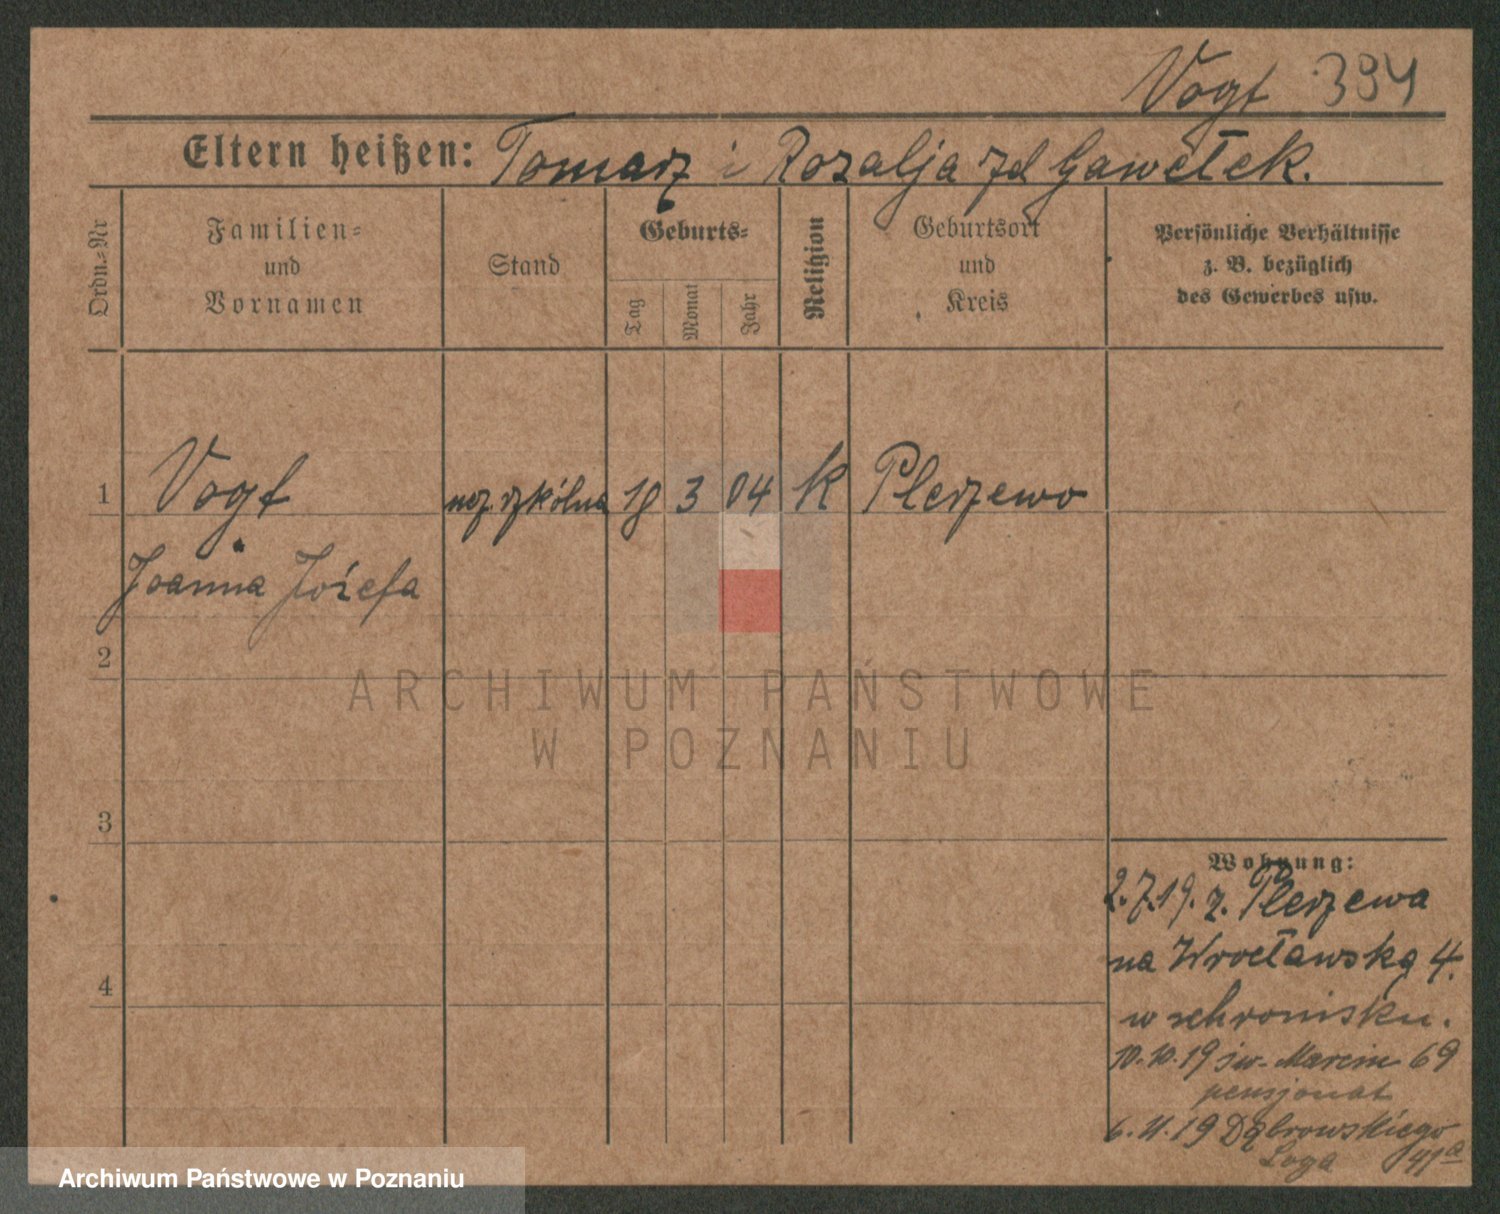 Vogt 394
Eltern heißen: Tomasz i Rozalja zd Gawełek.
Ordn.-Nr
Familien-
und
Vornamen
Stand
Geburts-
Tag
Monat
Jahr
Religion
Geburtsort
und
Kreis
Persönliche Verhältnisse
z. B. bezüglich
des Gewerbes usw.
1 Vogt ucz. szkólna 18 3 04 K Pleszewo
Joanna Józefa
2
ARCHIWUM PAŃSTWOWE
W POZNANIU
3
4
Wohnung:
2.7.19. z. Pleszewa
na Wrocławską 4.
w schronisku.
10.10.19 św. Marcin 69
pensjonat
6.11.19 Dąbrowskiego
41a
Archiwum Państwowe w Poznaniu